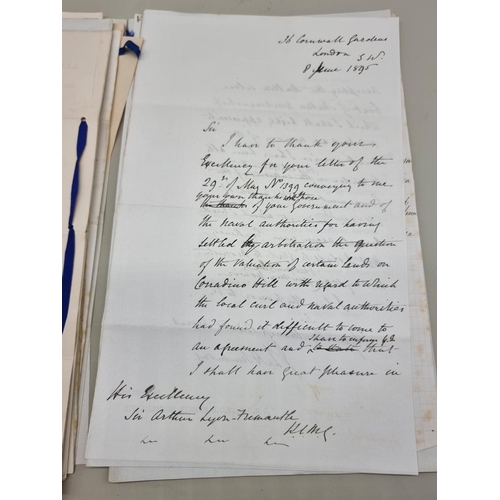 36 Cornwall Gardens
London S.W.
8 June 1895
Sir
I have to thank your
Excellency for your letter of the
29th of May No 1399 conveying to me
your own thanks with those
the thanks of your Government and of
the naval authorities for having
settled by arbitration the question
of the valuation of certain lands on
Corradino Hill with regard to which
the local civil and naval authorities
had found it difficult to come to
I have to inform Y.E.
an agreement and to state that
I shall have great pleasure in
His Excellency
Sir Arthur Lyon-Fremantle
K.C.M.G.